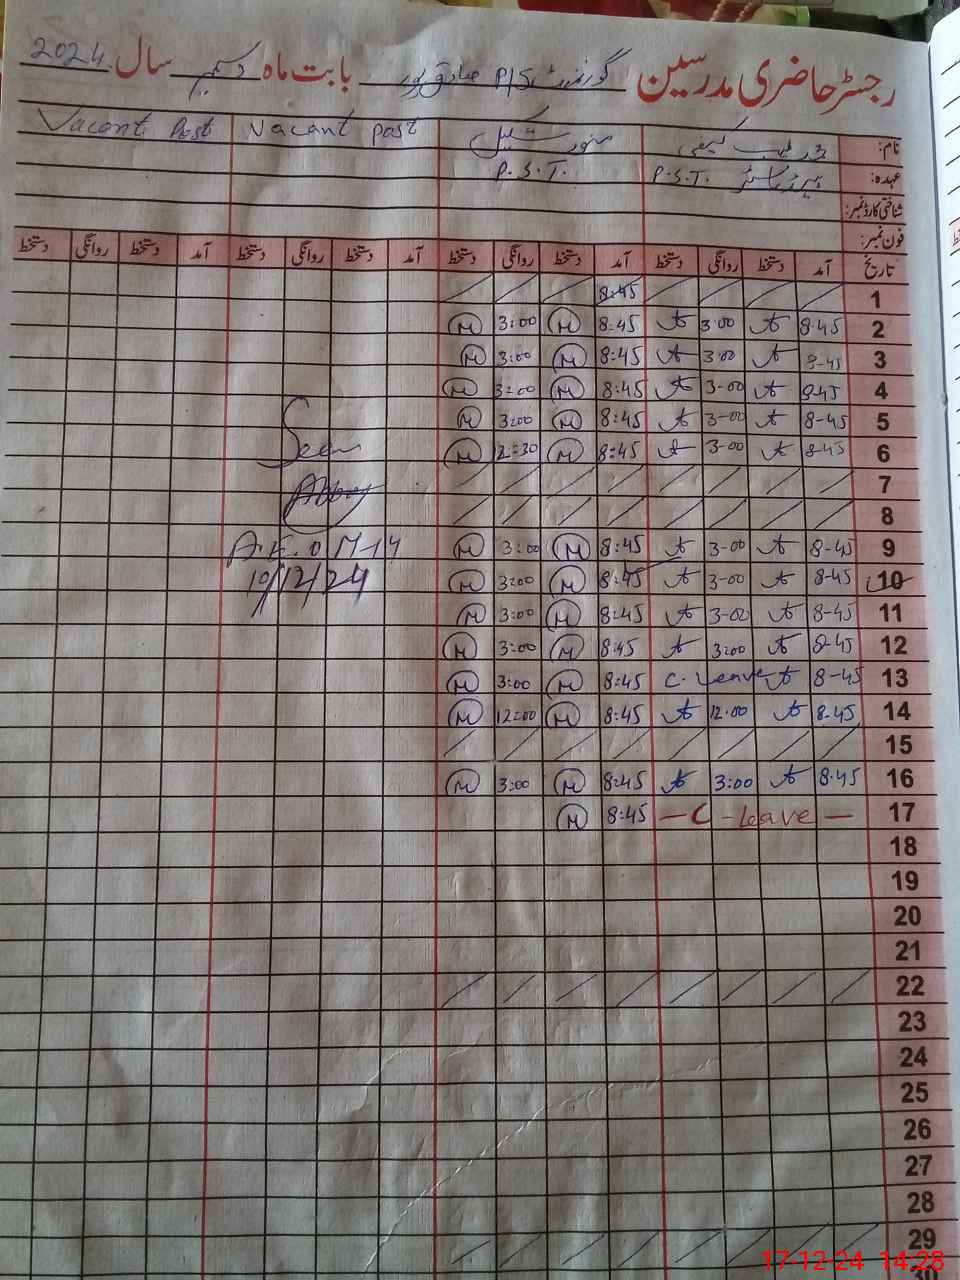 رجسٹر حاضری مدرسین گورنمنٹ P/S صادق پور بابت ماہ دسمبر سال 2024
نام: منور شکیل Vacant post Vacant Post
عہدہ: ہیڈ ماسٹر P.S.T. P.S.T.
شناختی کارڈ نمبر:
فون نمبر:
تاریخ آمد دستخط روانگی دستخط آمد دستخط روانگی دستخط آمد دستخط روانگی دستخط آمد دستخط روانگی دستخط
1 8:45
2 8-45 3:00 8:45 M 3:00 M
3 8-45 3:00 8:45 M 3:00 M
4 8-45 3-00 8:45 M 3:00 M
5 8-45 3-00 8:45 M 3:00 M
6 8-45 3-00 8:45 M 12:30 M
Seen
7
8
9 8-45 3-00 8:45 M 3:00 M
A.E.O M-14
10 8-45 3-00 8:45 M 3:00 M
10/12/24
11 8-45 3-00 8:45 M 3:00 M
12 8-45 3:00 8:45 M 3:00 M
13 8-45 C. Leave 8:45 M 3:00 M
14 8-45 12:00 8:45 M 12:00 M
15
16 8:45 3:00 8:45 M 3:00 M
17 — C - Leave — 8:45 M
18
19
20
21
22
23
24
25
26
27
28
29
17-12-24 14:28